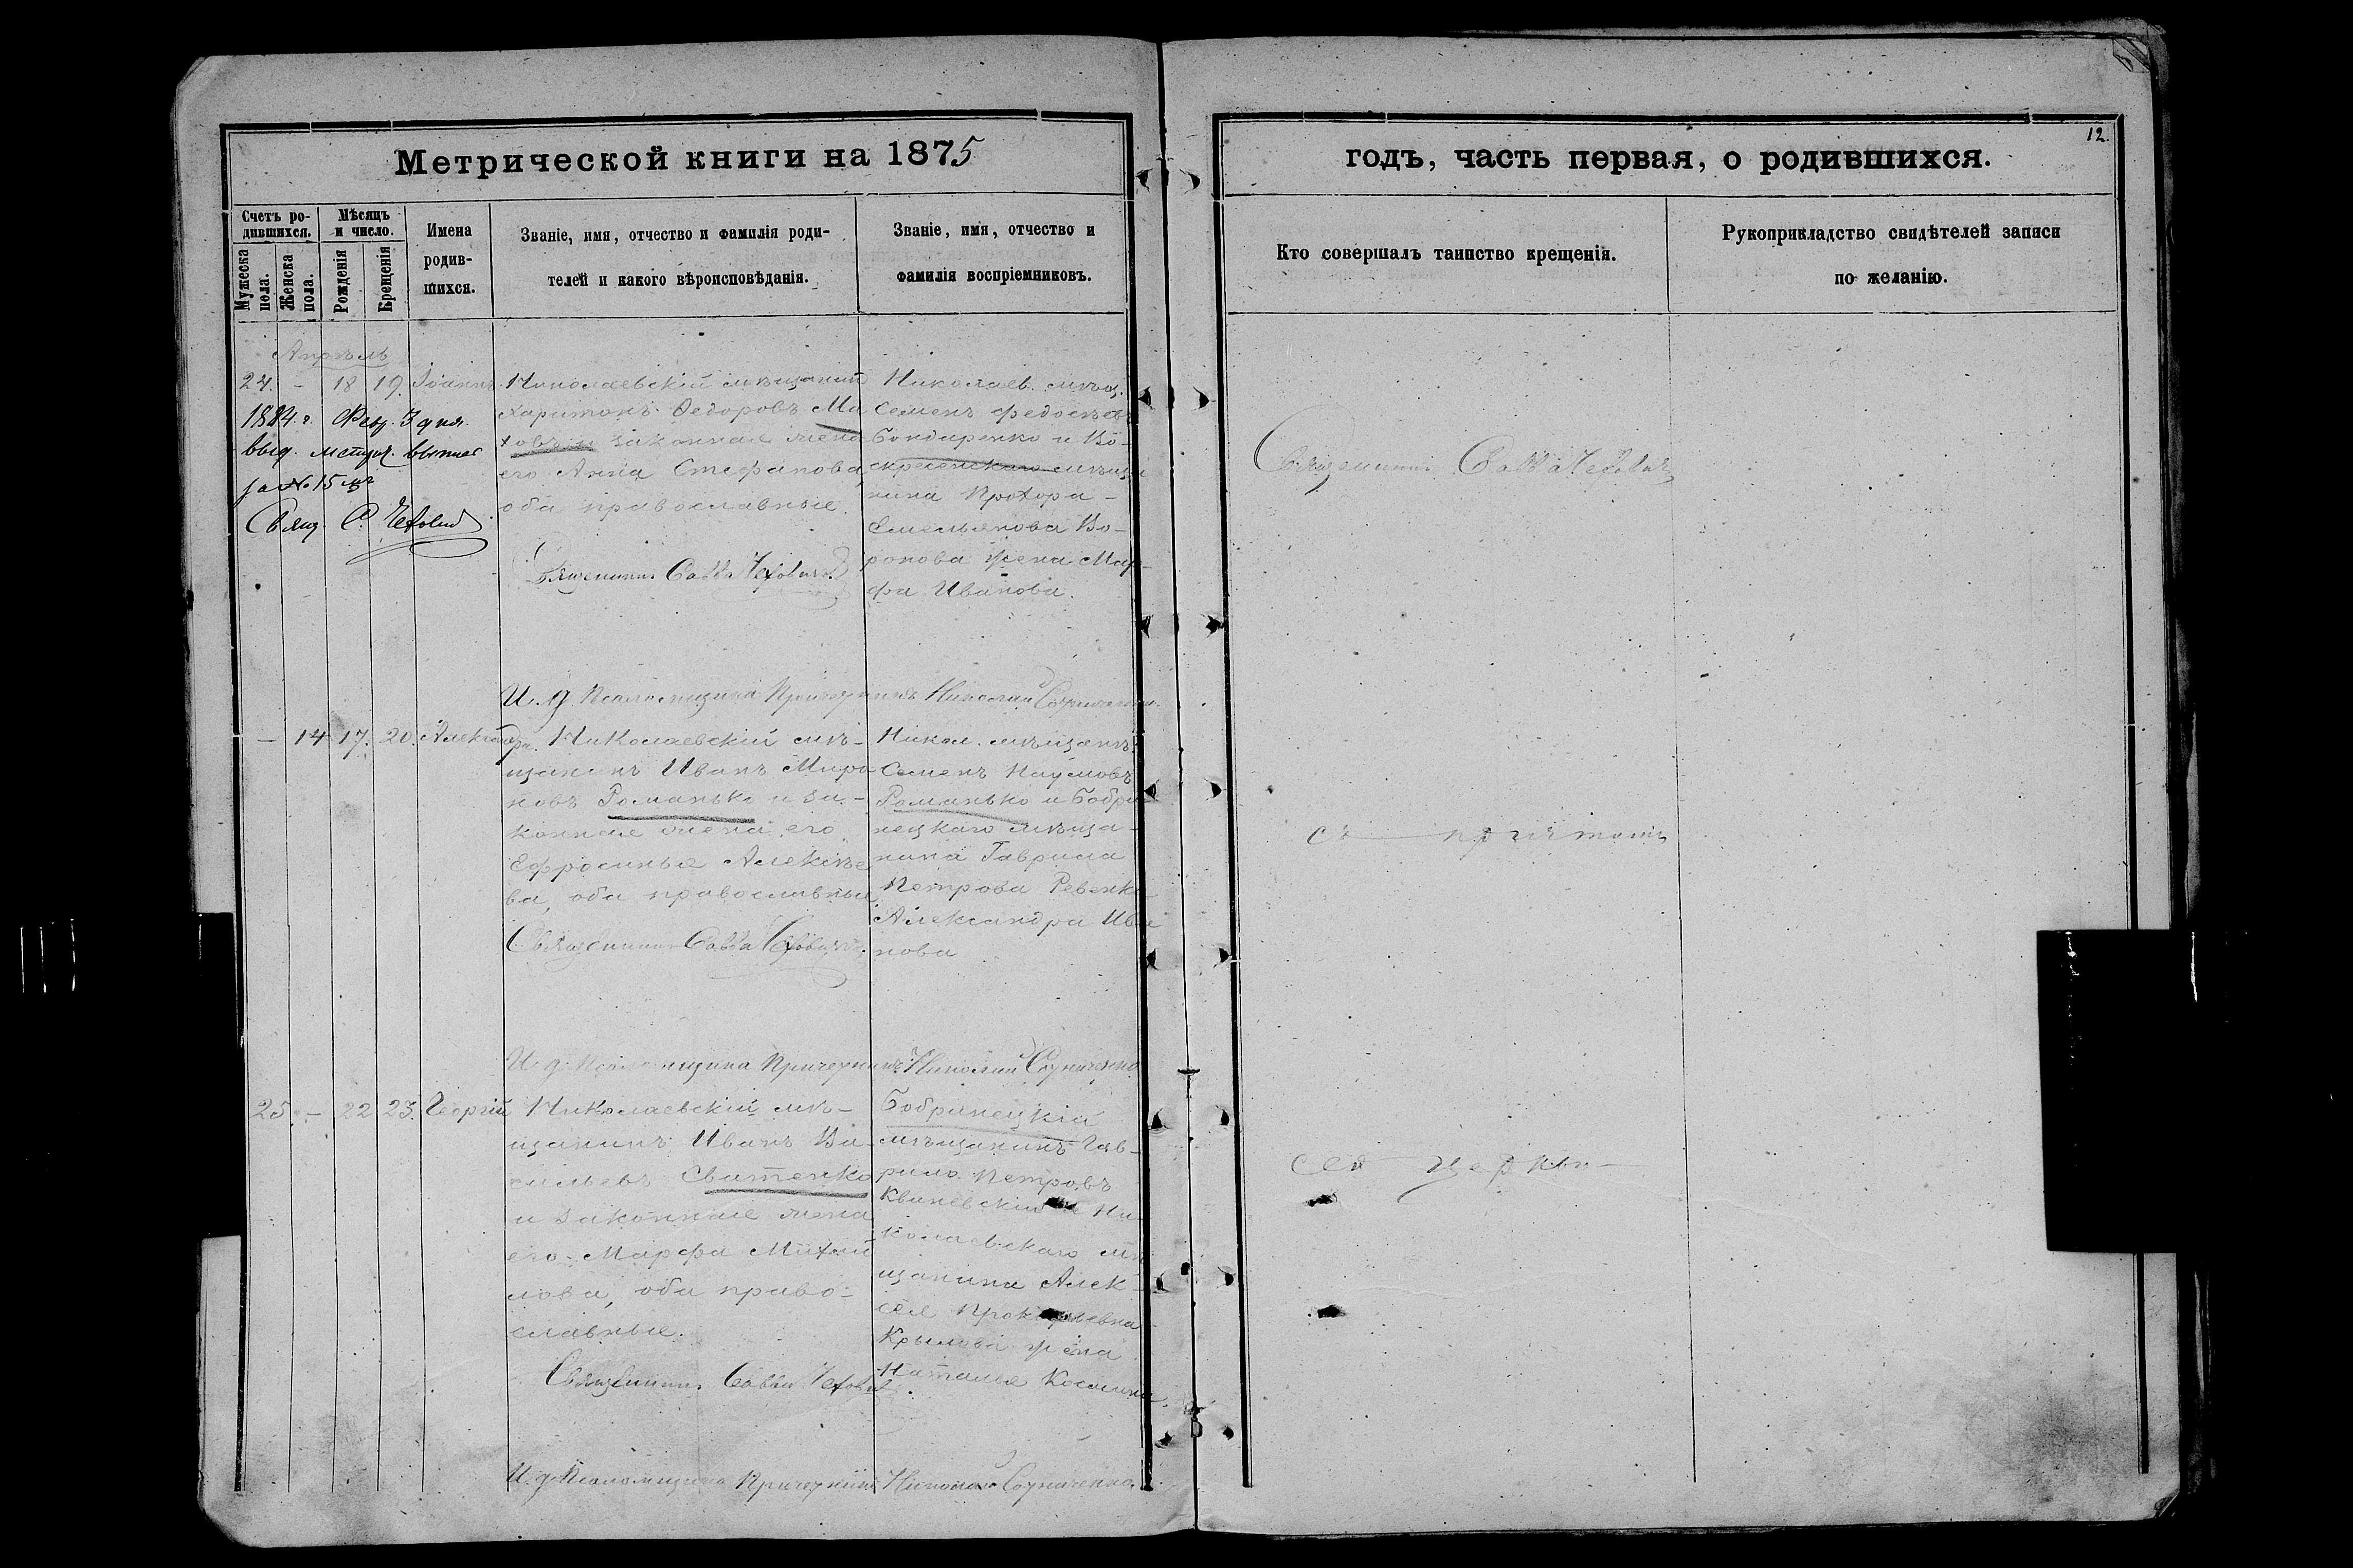 Метрической книги на 1875
годъ, часть первая, о родившихся.
12.
Счетъ ро-
дившихся.
Мужеска
пола.
Женска
пола.
Мѣсяцъ
и число.
Рожденія
Крещенія
Имена
родив-
шихся.
Званіе, имя, отчество и фамилія роди-
телей и какого вѣроисповѣданія.
Званіе, имя, отчество и
фамилія воспріемниковъ.
Кто совершалъ таинство крещенія.
Рукоприкладство свидѣтелей записи
по желанію.
Апрѣль
24. - 18 19. Іоаннъ
1884 г. Февр. 3 дня
выд. метрич. выпись
за № 15 мъ
Свящ. С. Чехович
Николаевскій мѣщанин
Харитонъ Ѳедоровъ Ма
ховъ и законная жена
его Анна Стефанова,
оба православные.
Священникъ Савва Чеховичъ
Николаев. мѣщ.
Семенъ Федосѣевъ
Бондаренко и Во-
скресенскаго мѣща
нина Прохора
Емельянова Во-
ронова жена Мар-
фа Иванова.
И. д. Псаломщика Причетникъ Николай
- 14 17. 20. Александра.
Николаевскій мѣ-
щанинъ Иванъ Миро
новъ Романько и за-
конная жена его
Ефросинья Алексѣе
ва, оба православные
Священникъ Савва Чеховичъ.
Никол. мѣщанъ
Семенъ Наумовъ
Романько и Бобри
нецкаго мѣща-
нина Гаврила
Петрова Ревенко
Александра Ива
нова
И. д. Псаломщика Причетникъ Николай
25. - 22 23. Георгій
Николаевскій мѣ-
щанинъ Иванъ Ва-
сильевъ Свитенко
и законная жена
его Марфа Михай
лова, оба право-
славные.
Священникъ Савва Чехович
Бобринецкій
мѣщанинъ Гав-
рило Петровъ
Квиневскій и Ни
колаевскаго мѣ
щанина Алек-
сея
Крылова жена
Наталья Косьмина
И. д. Псаломщика Причетникъ Николай
Священникъ Савва Чеховичъ
съ причтомъ
сея церкви